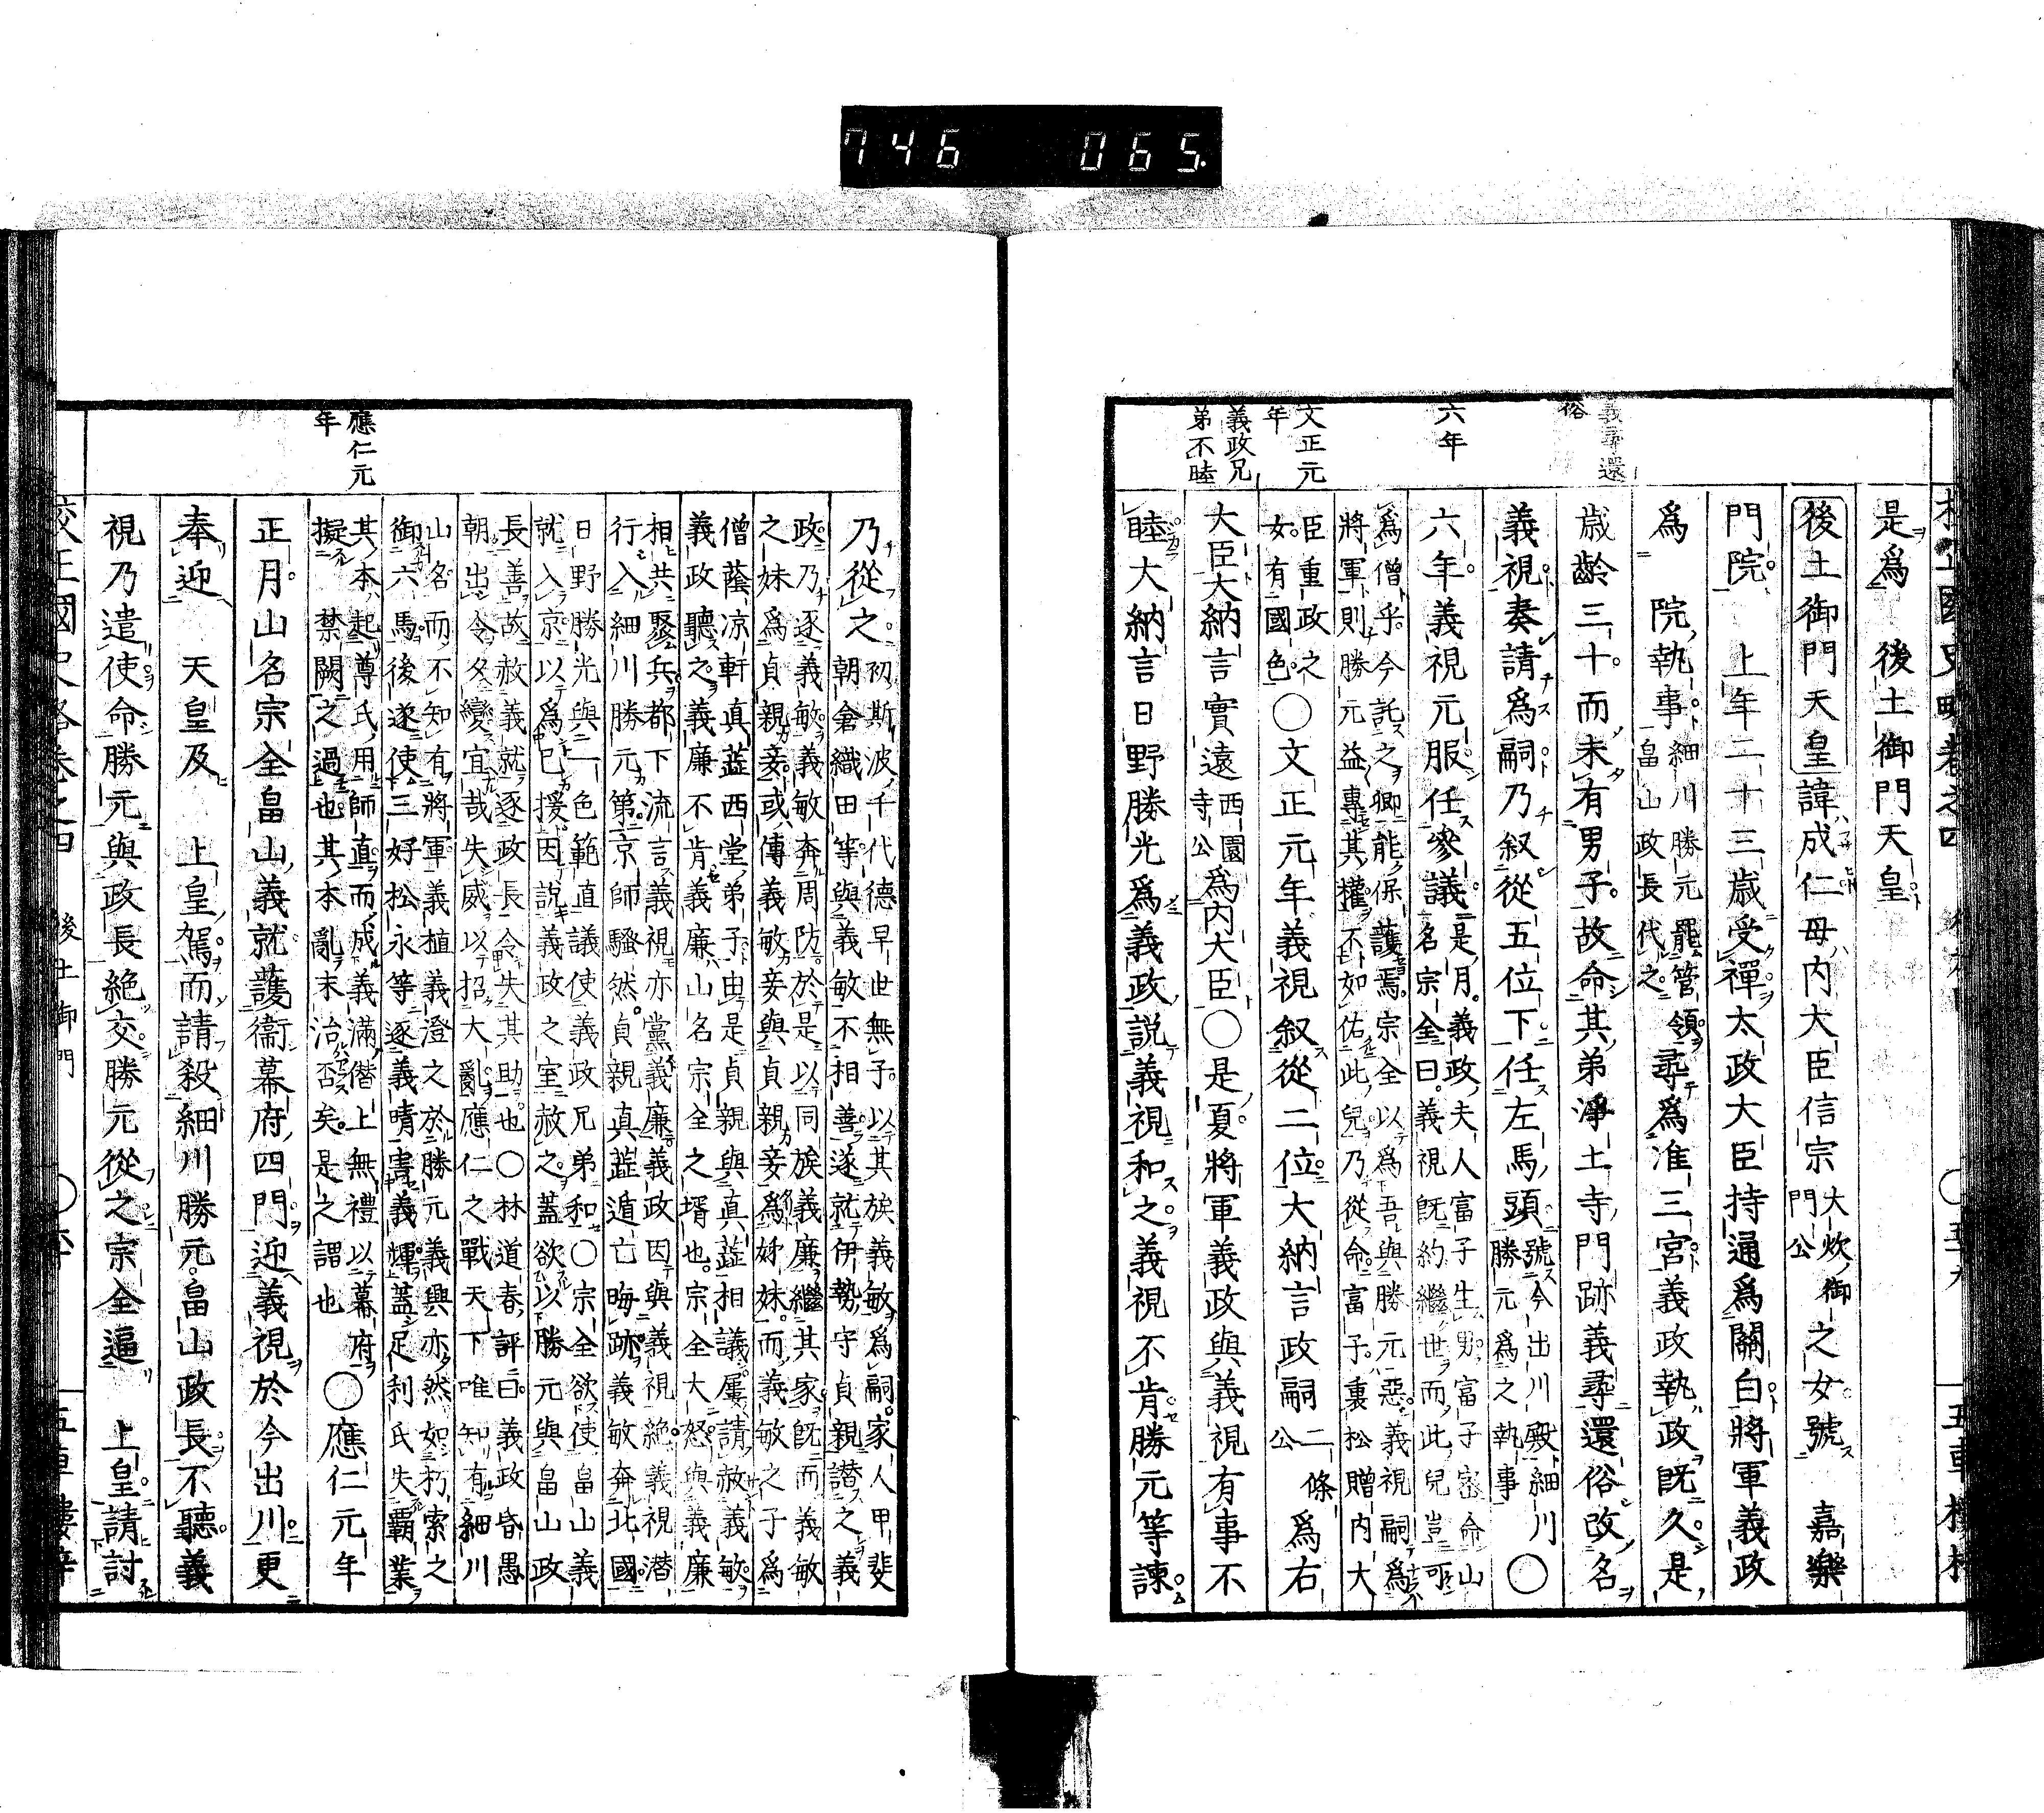 746 065.
義尋還
俗
六年
文正元
年
義政兄
弟不睦
是爲 後土御門天皇
後土御門天皇諱成仁母内大臣信宗大炊御門公之女號 嘉樂
門院 上年二十三歲受禪太政大臣持通爲關白將軍義政
爲 院執事細川勝元罷管領畠山政長代之尋爲准三宮義政執政既久是
歲齡三十而未有男子故命其弟淨土寺門跡義尋還俗改名
義視奏請爲嗣乃叙從五位下任左馬頭號今出川殿細川勝元爲之執事〇
六年義視元服任參議是月義政夫人富子生男富子密命山名宗全曰義視既約繼世而此兒豈可
爲僧乎今託之卿能保護焉宗全以爲吾與勝元惡義視嗣爲將軍則勝元益專其權不如佑此兒乃從命富子裏松贈内大
臣重政之女有國色〇文正元年義視叙從二位大納言政嗣二條公爲右
大臣大納言實遠西園寺公爲内大臣〇是夏將軍義政與義視有事不
睦大納言日野勝光爲義政説義視和之義視不肯勝元等諫
應仁元
年
乃從之初斯波千代德早世無子以其族義敏爲嗣家人甲斐朝倉織田等與義敏不相善遂就伊勢守貞親譖之義
政乃逐義敏義敏奔周防於是以同族義廉繼其家既而義敏之妹爲貞親妾或傳義敏妾與貞親妾爲姊妹而義敏之子爲
僧蔭凉軒真蘂西堂弟子由是貞親與真蘂相議屢請赦義敏義政聽之義廉不肯義廉山名宗全之壻也宗全大怒與義廉
相共聚兵都下流言義視亦黨義廉義政因與義視絶義視潛行入細川勝元第京師騷然貞親真蘂遁亡晦跡義敏奔北國
日野勝光與一色範直議使義政兄弟和〇宗全欲使畠山義就入京以爲己援因説義政之室赦之蓋欲以勝元與畠山政
長善故赦義就逐政長令失其助也〇林道春評曰義政昏愚朝出令夕變宜哉失威以招大亂應仁之戰天下唯知有細川
山名而不知有將軍義植義澄之於勝元義興亦然如朽索之御六馬後遂使三好松永等逐義晴害義輝蓋足利氏失覇業
其本起尊氏用師直而成義滿僭上無禮以幕府擬 禁闕之過也其本亂末治否矣是之謂也〇應仁元年
正月山名宗全畠山義就護衞幕府四門迎義視於今出川更
奉迎 天皇及 上皇駕而請殺細川勝元畠山政長不聽義
視乃遣使命勝元與政長絶交勝元從之宗全逼 上皇請討
後土御門